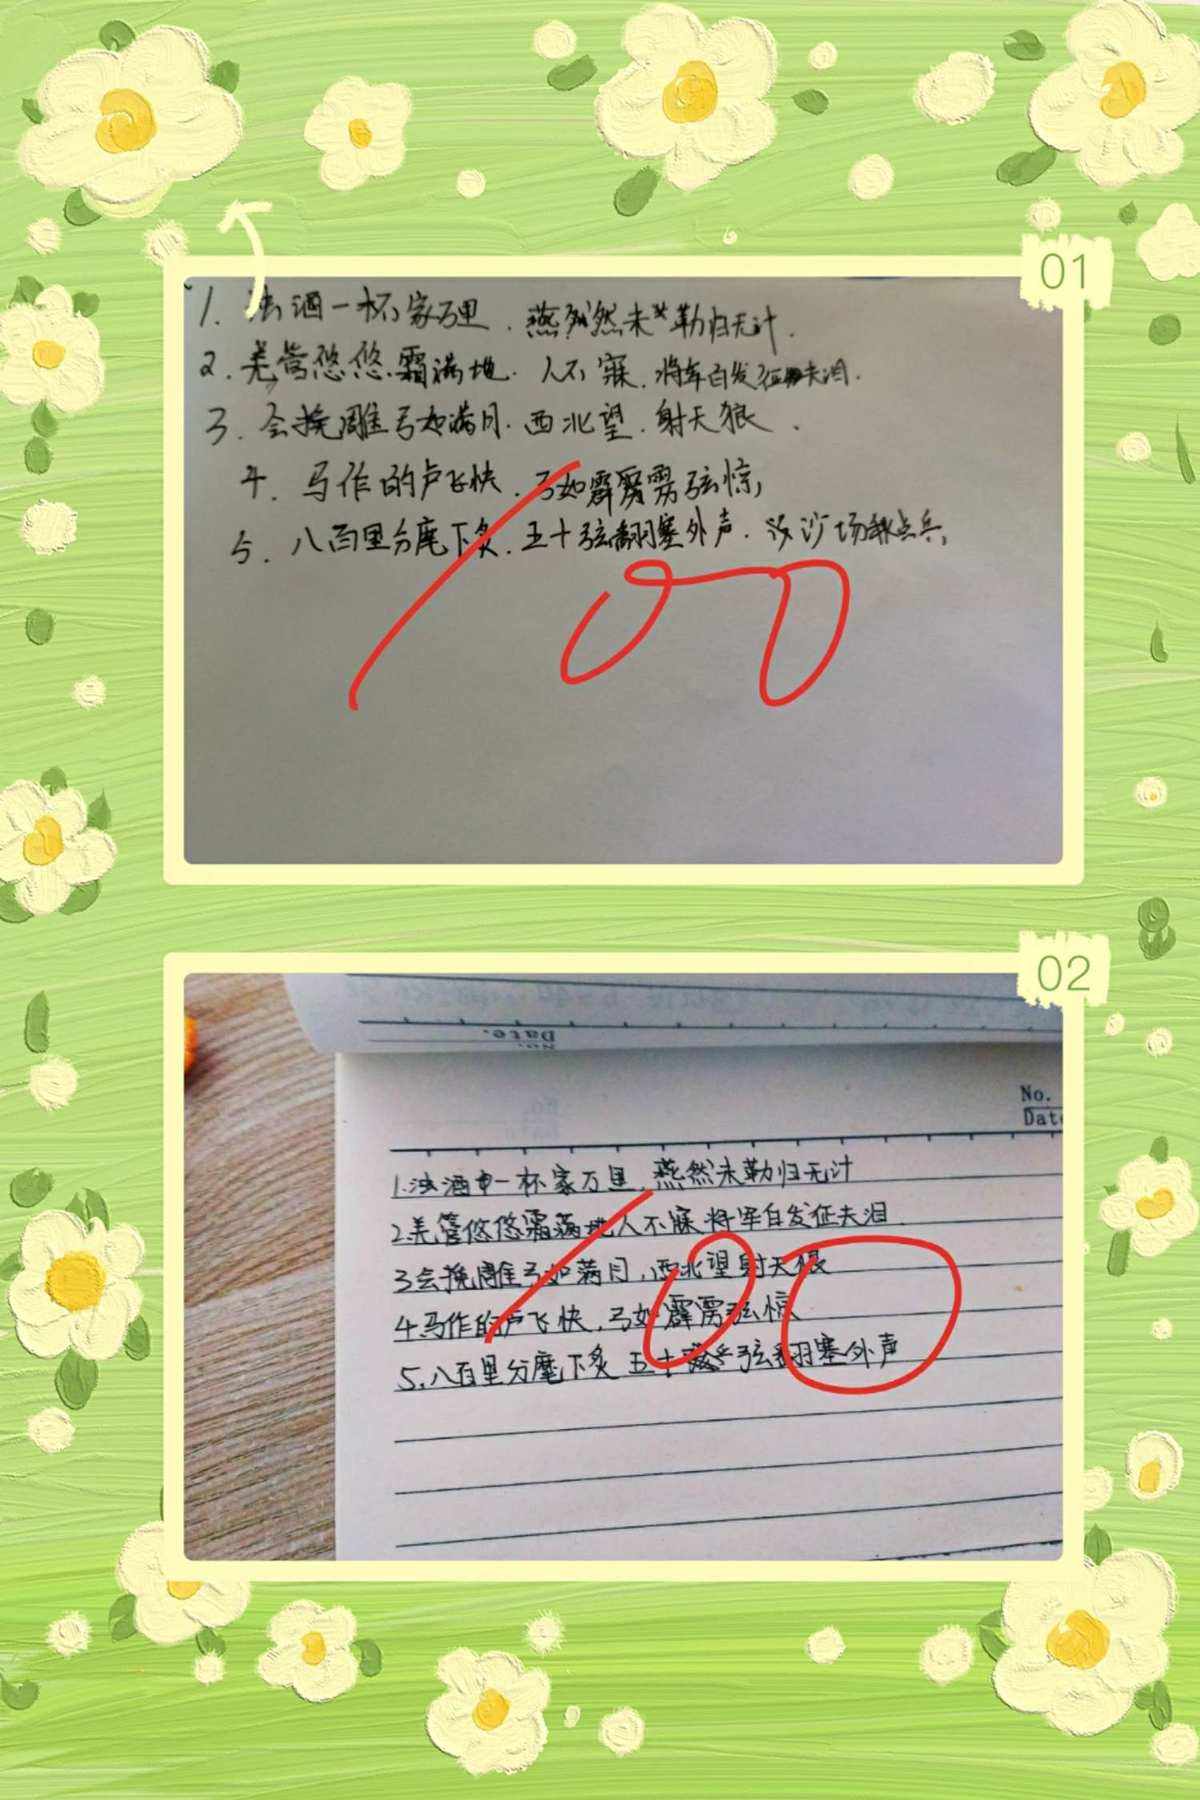 01
1. 浊酒一杯家万里. 燕然未勒归无计.
2. 羌管悠悠霜满地. 人不寐. 将军白发征夫泪.
3. 会挽雕弓如满月. 西北望. 射天狼.
4. 马作的卢飞快. 弓如霹雳弦惊,
5. 八百里分麾下炙. 五十弦翻塞外声. 沙场秋点兵,
100
02
No.
Date.
No.
Date
1.浊酒一杯家万里, 燕然未勒归无计
2.羌管悠悠霜满地人不寐将军白发征夫泪.
3会挽雕弓如满月, 西北望射天狼
4马作的卢飞快, 弓如霹雳弦惊
5.八百里分麾下炙 五十弦翻塞外声
100